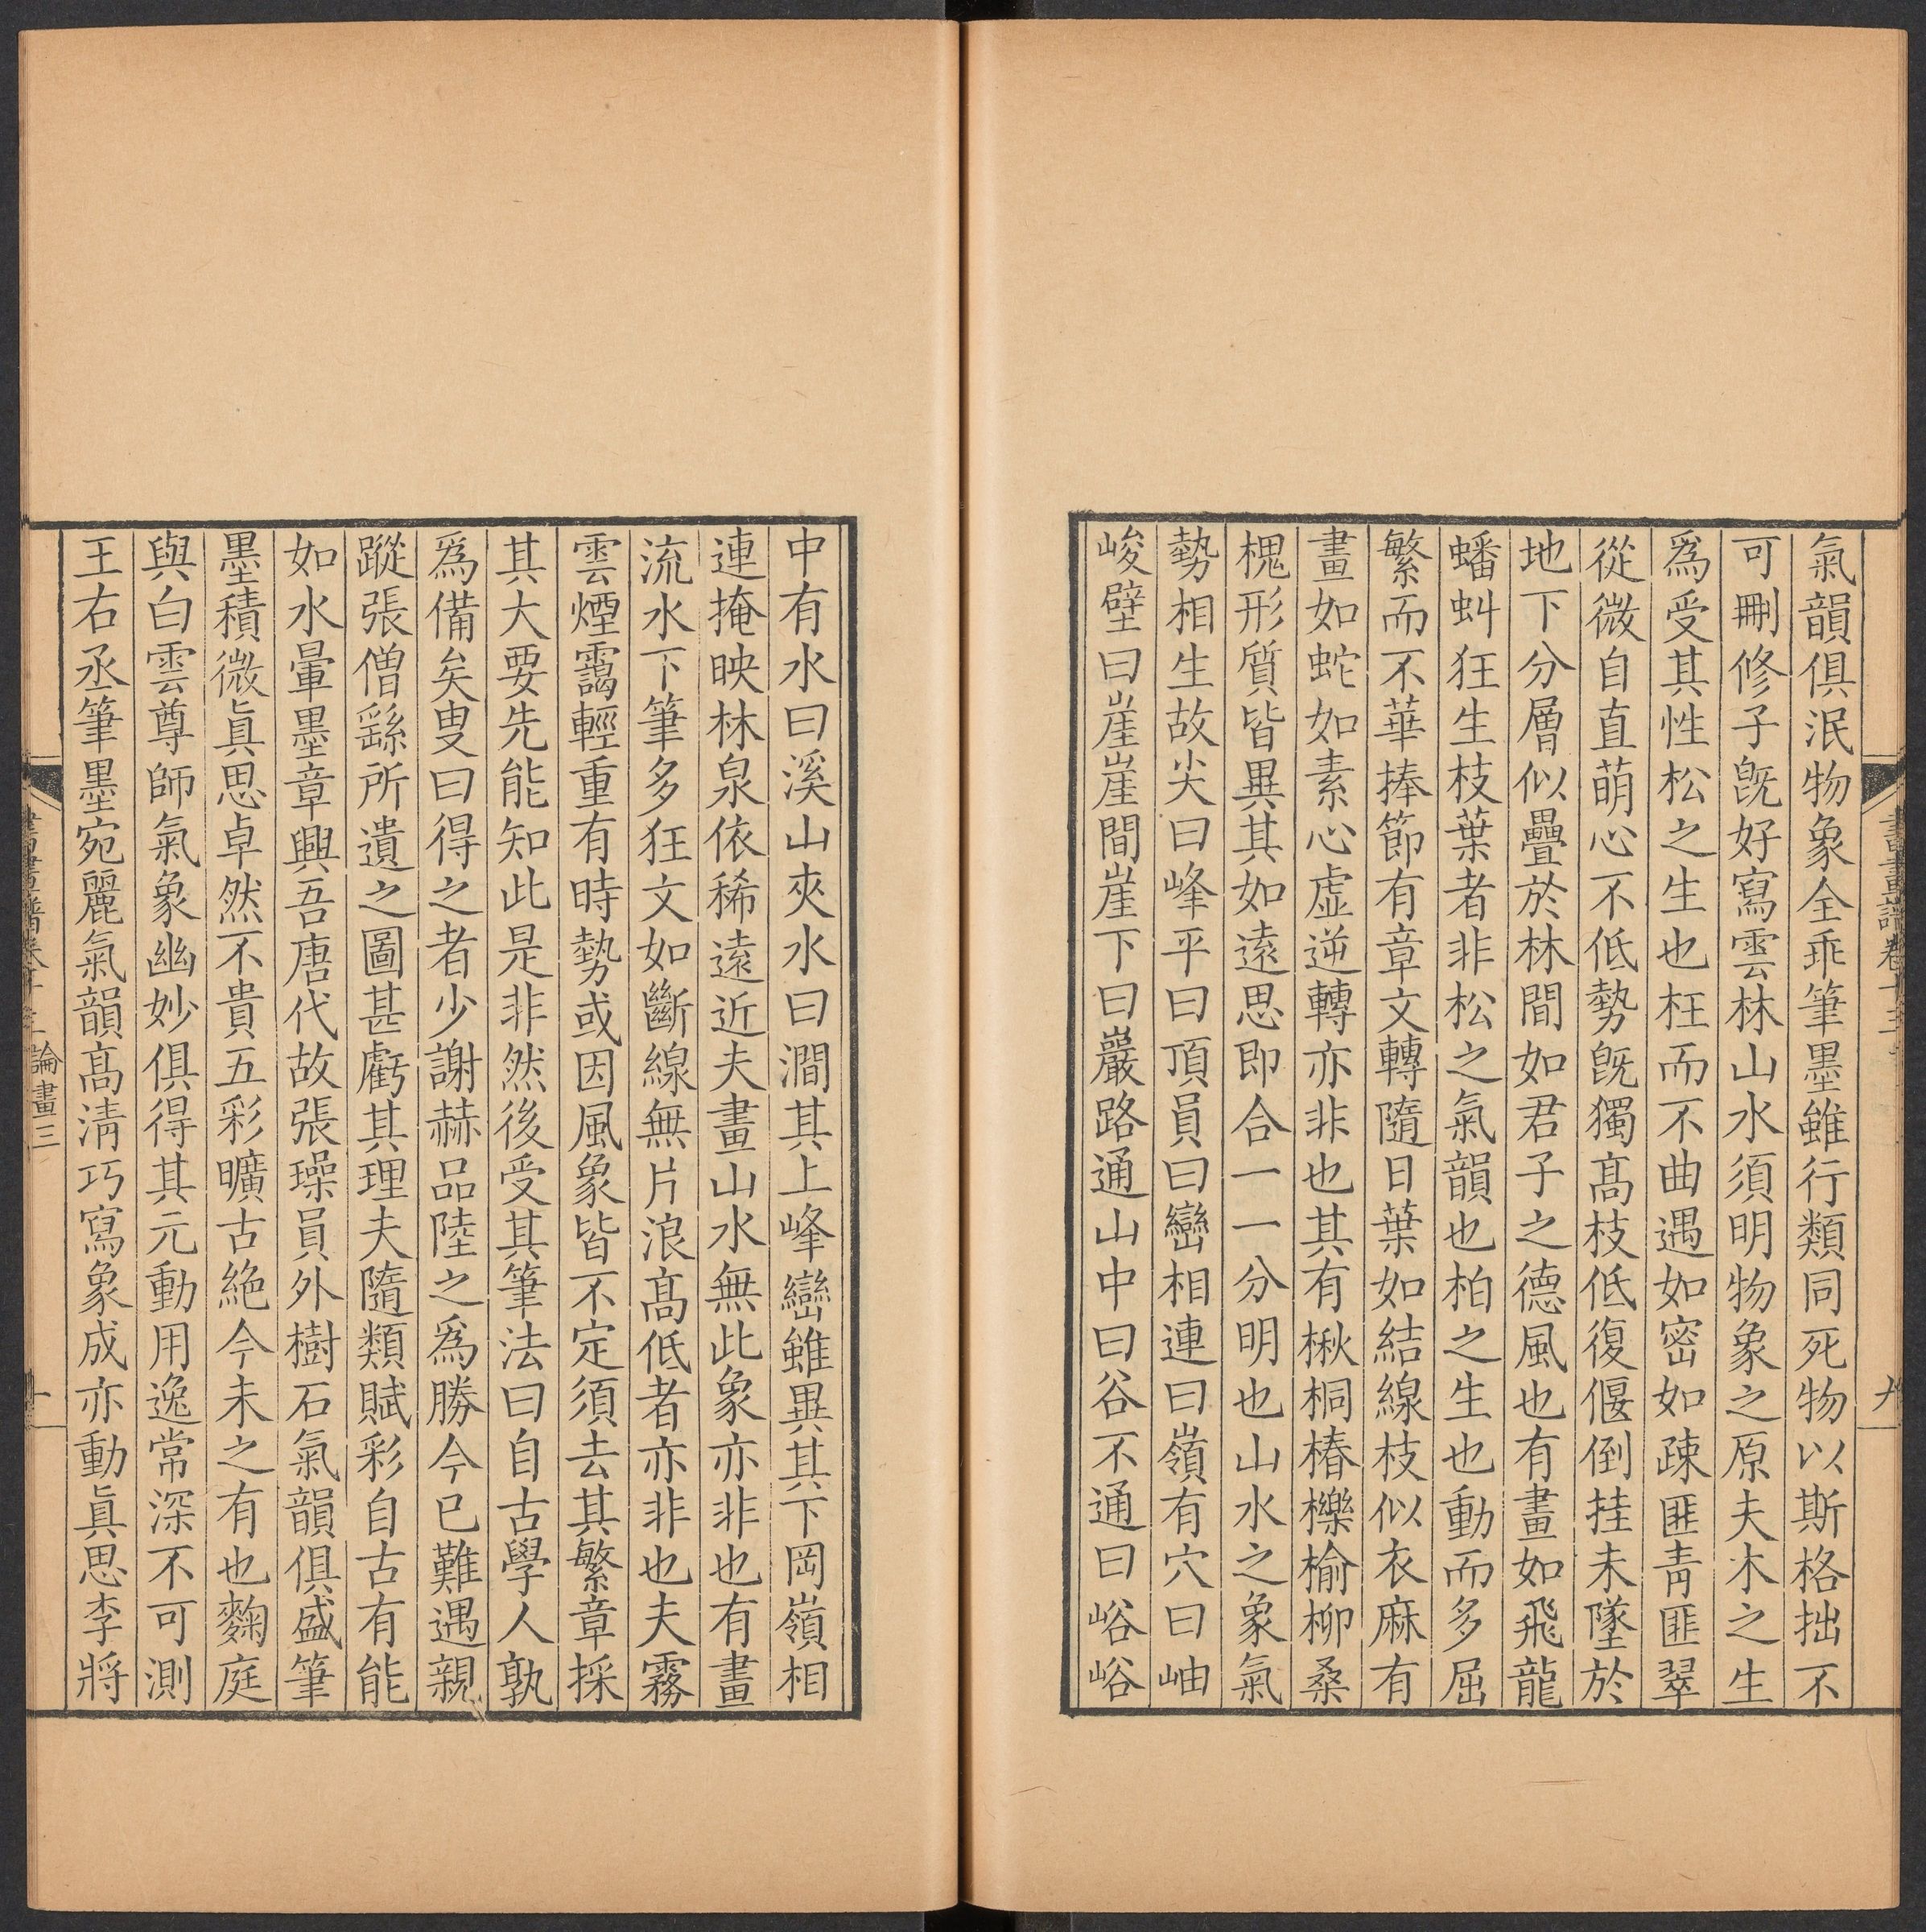 氣韻俱泯物象全乖筆墨雖行類同死物以斯格拙不
可刪修子旣好寫雲林山水須明物象之原夫木之生
爲受其性松之生也枉而不曲遇如密如疎匪靑匪翠
從微自直萌心不低勢旣獨髙枝低復偃倒挂未墜於
地下分層似疊於林間如君子之德風也有畫如飛龍
蟠虯狂生枝葉者非松之氣韻也柏之生也動而多屈
繁而不華捧節有章文轉隨日葉如結線枝似衣麻有
畫如蛇如素心虛逆轉亦非也其有楸桐椿櫟榆柳桑
槐形質皆異其如遠思即合一一分明也山水之象氣
勢相生故尖曰峰平曰頂員曰巒相連曰嶺有穴曰岫
峻壁曰崖崖間崖下曰巖路通山中曰谷不通曰峪峪
中有水曰溪山夾水曰澗其上峰巒雖異其下岡嶺相
連掩映林泉依稀遠近夫畫山水無此象亦非也有畫
流水下筆多狂文如斷線無片浪髙低者亦非也夫霧
雲煙靄輕重有時勢或因風象皆不定須去其繁章採
其大要先能知此是非然後受其筆法曰自古學人孰
爲備矣叟曰得之者少謝赫品陸之爲勝今已難遇親
蹤張僧繇所遺之圖甚虧其理夫隨類賦彩自古有能
如水暈墨章興吾唐代故張璪員外樹石氣韻俱盛筆
墨積微眞思卓然不貴五彩曠古絶今未之有也麴庭
與白雲尊師氣象幽妙俱得其元動用逸常深不可測
王右丞筆墨宛麗氣韻髙淸巧寫象成亦動眞思李將
書畫譜卷十三
九
論畫三